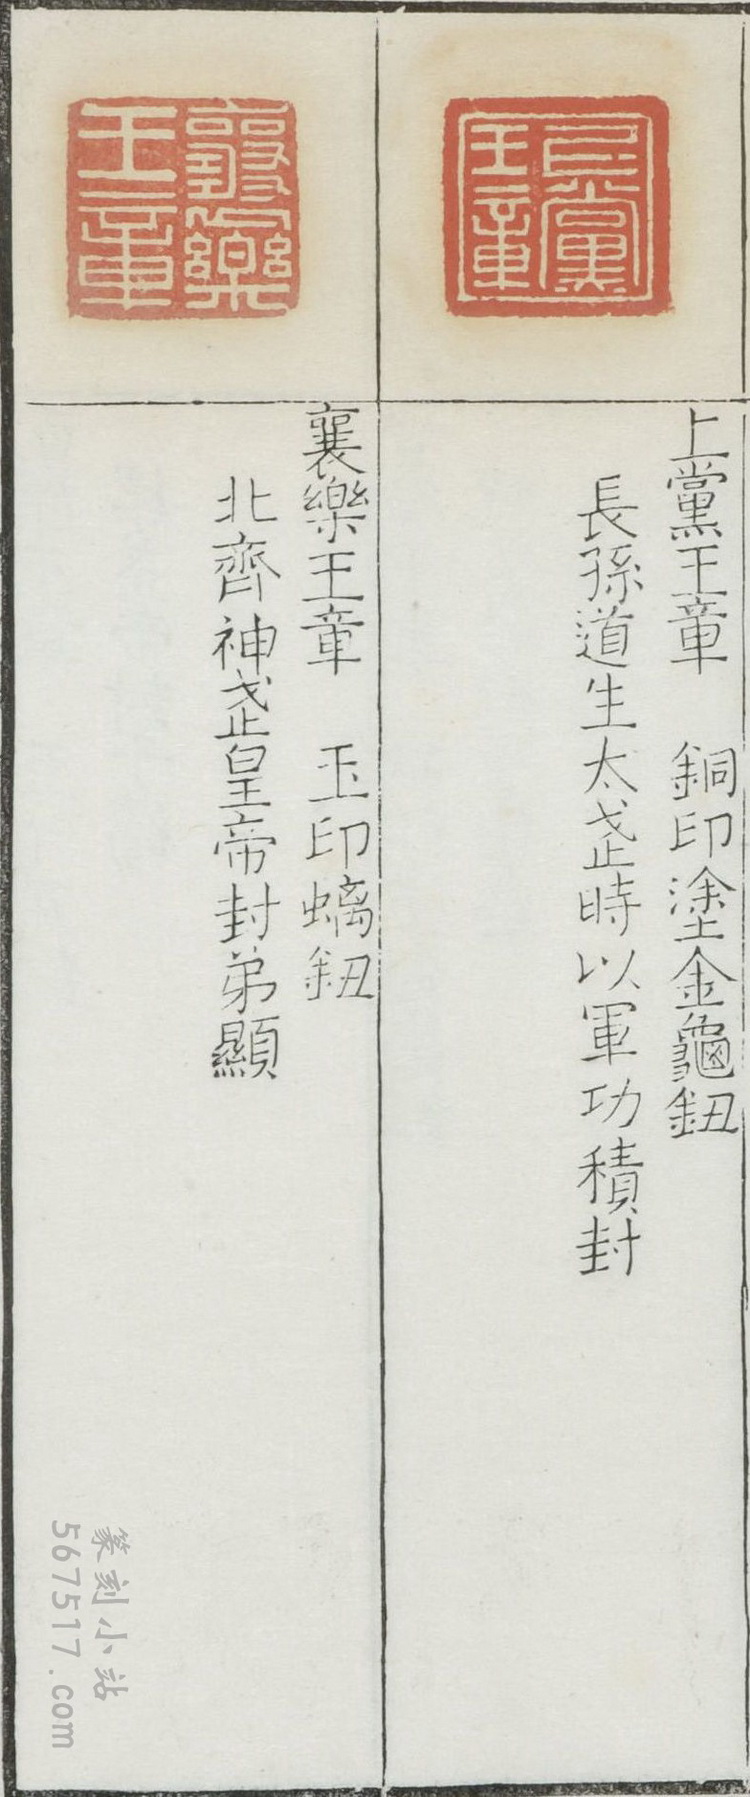 上黨王章
上黨王章 銅印塗金龜鈕
長孫道生太武時以軍功積封
襄樂王章
襄樂王章 玉印螭鈕
北齊神武皇帝封弟顯
篆刻小站
567517.com